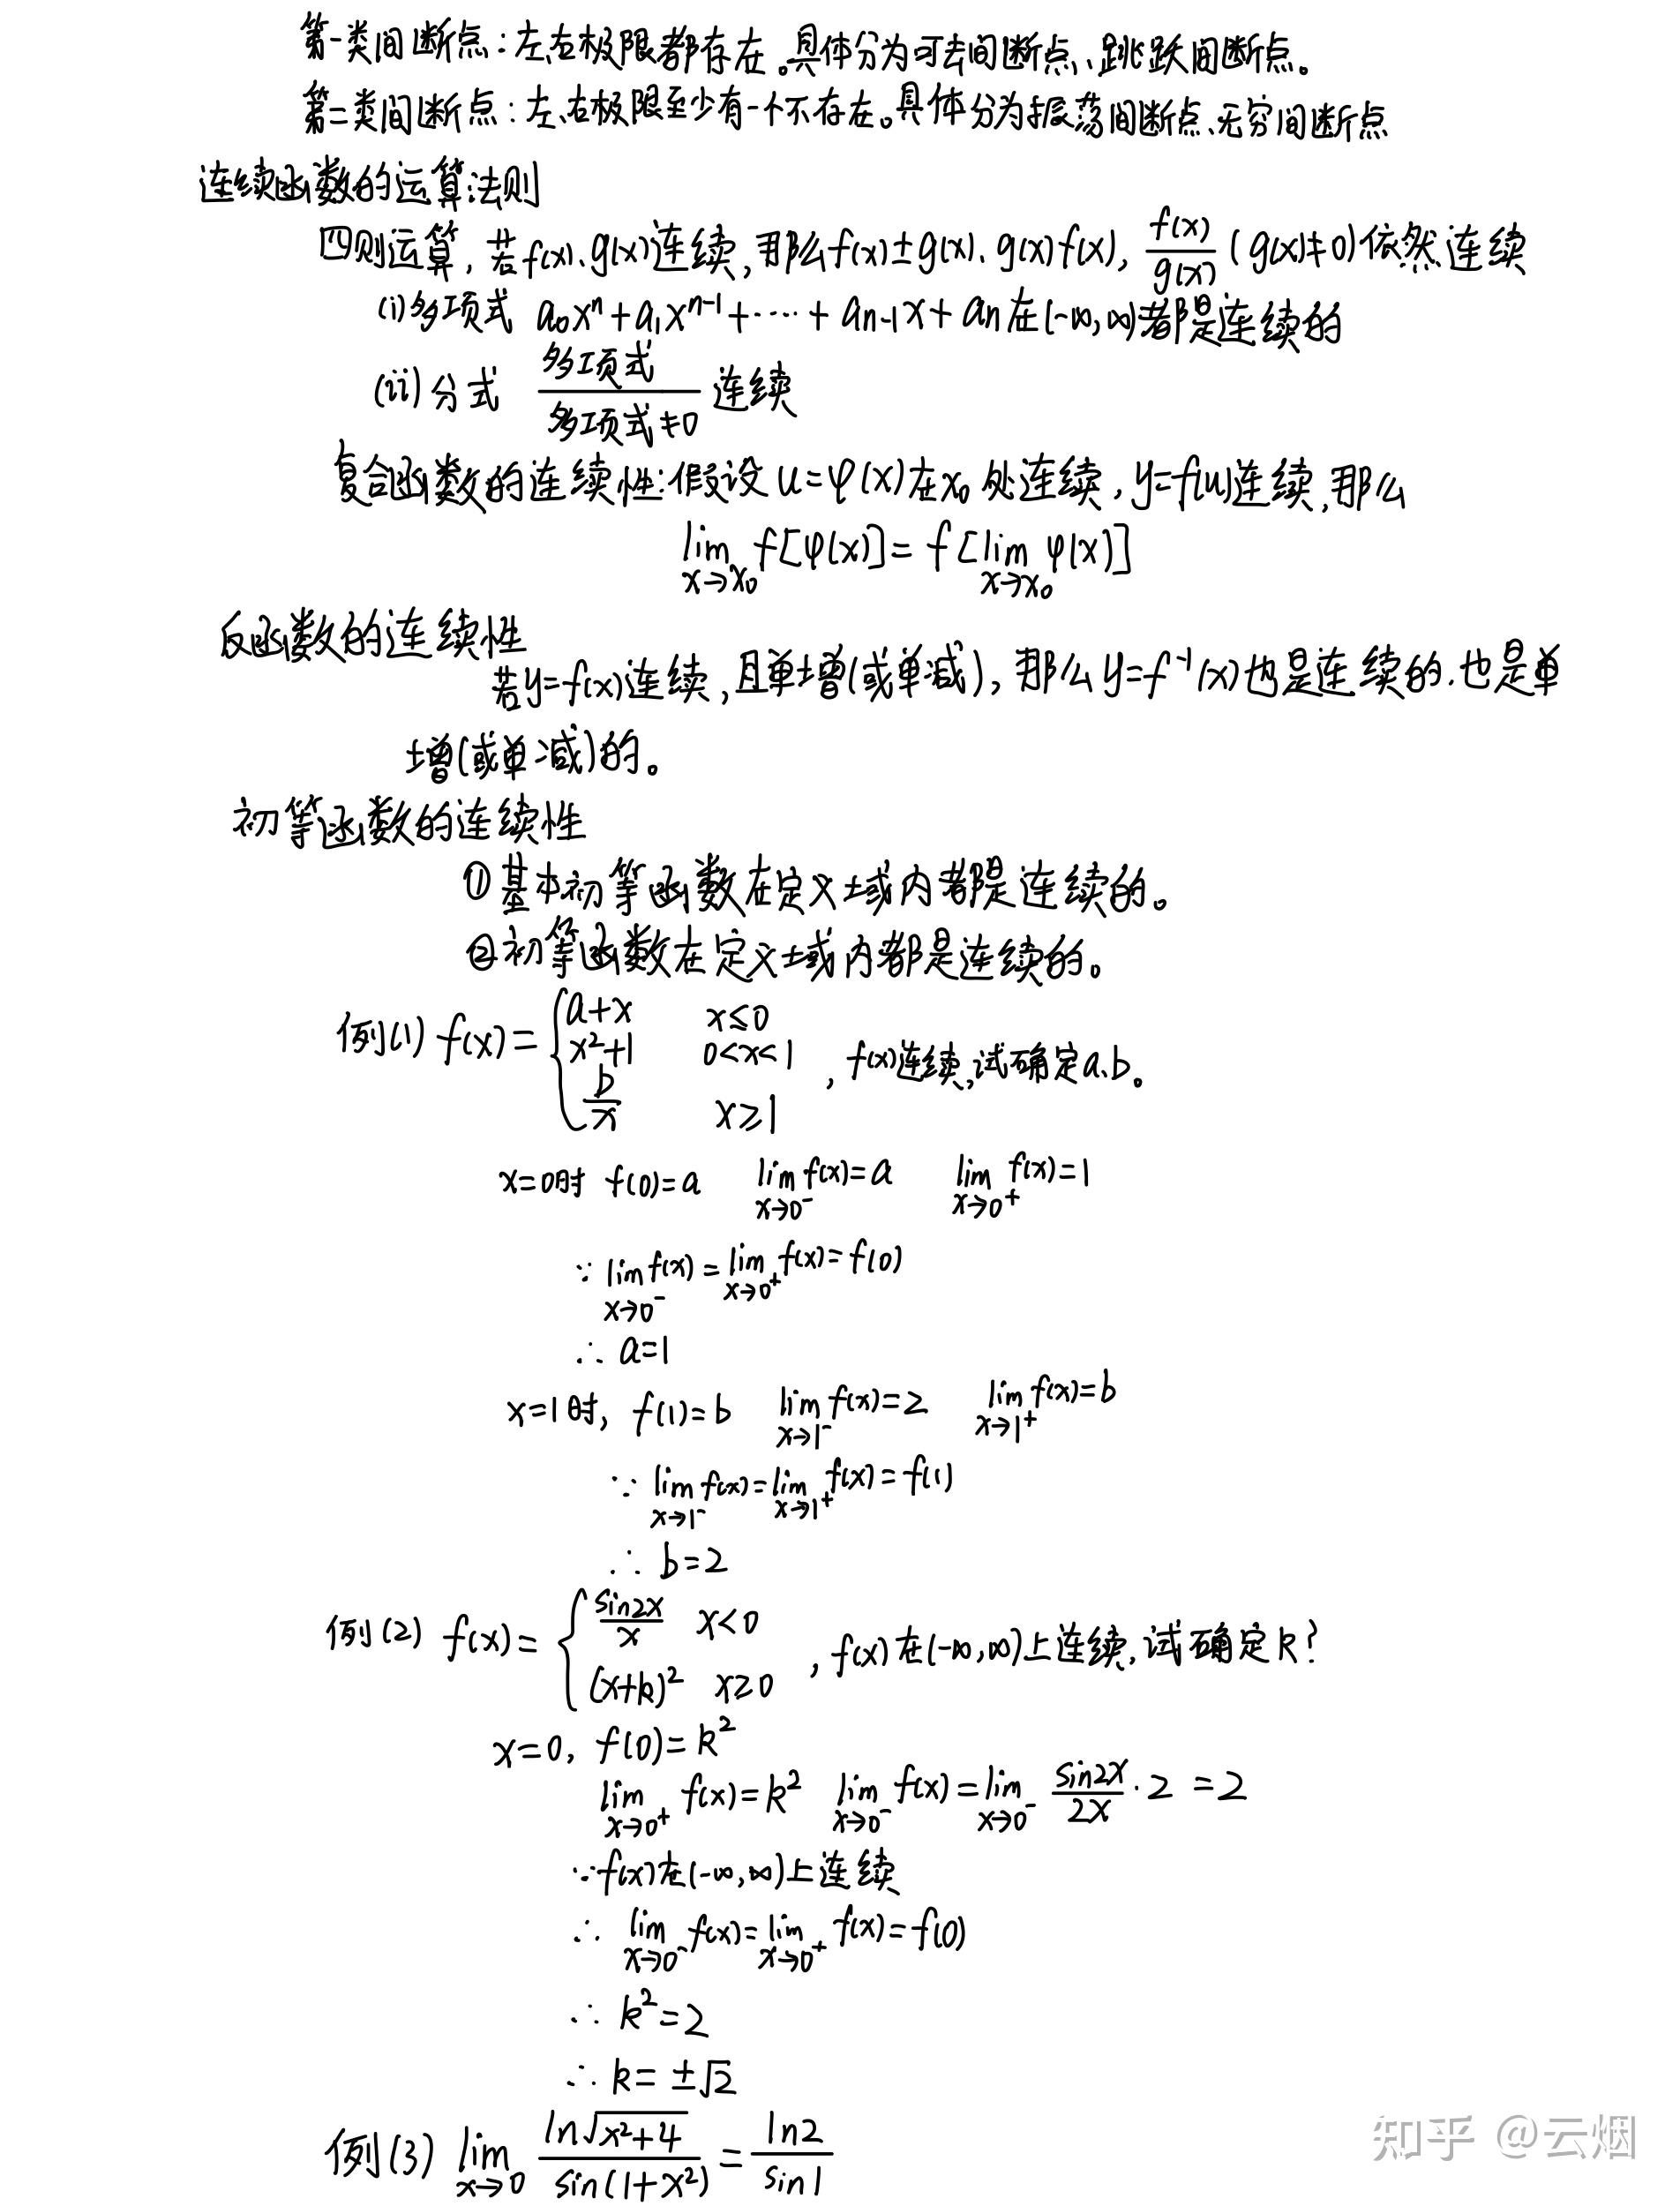 第一类间断点：左、右极限都存在。具体分为可去间断点、跳跃间断点。
第二类间断点：左、右极限至少有一个不存在。具体分为振荡间断点、无穷间断点
连续函数的运算法则
四则运算，若f(x)、g(x)连续，那么f(x)±g(x)、g(x)f(x)，f(x)/g(x) (g(x)≠0)依然连续
(i)多项式 a₀xⁿ+a₁xⁿ⁻¹+⋯+aₙ₋₁x+aₙ在(-∞,∞)都是连续的
(ii)分式 多项式/多项式≠0 连续
复合函数的连续性：假设u=φ(x)在x₀处连续，y=f(u)连续，那么
lim x→x₀ f[φ(x)]=f[lim x→x₀ φ(x)]
反函数的连续性
若y=f(x)连续，且单增(或单减)，那么y=f⁻¹(x)也是连续的.也是单
增(或单减)的。
初等函数的连续性
①基本初等函数在定义域内都是连续的。
②初等函数在定义域内都是连续的。
例(1) f(x)={a+x x≤0
x²+1 0<x<1
b/x x≥1 ，f(x)连续，试确定a、b。
x=0时 f(0)=a lim x→0⁻ f(x)=a lim x→0⁺ f(x)=1
∵ lim x→0⁻ f(x)=lim x→0⁺ f(x)=f(0)
∴ a=1
x=1时, f(1)=b lim x→1⁻ f(x)=2 lim x→1⁺ f(x)=b
∵ lim x→1⁻ f(x)=lim x→1⁺ f(x)=f(1)
∴ b=2
例(2) f(x)={sin2x/x x<0
(x+k)² x≥0 ，f(x)在(-∞,∞)上连续，试确定k？
x=0, f(0)=k²
lim x→0⁺ f(x)=k² lim x→0⁻ f(x)=lim x→0⁻ sin2x/2x·2 =2
∵f(x)在(-∞,∞)上连续
∴ lim x→0⁻ f(x)=lim x→0⁺ f(x)=f(0)
∴ k²=2
∴ k=±√2
例(3) lim x→0 ln√(x²+4)/sin(1+x²)=ln2/sin1
知乎 @云烟